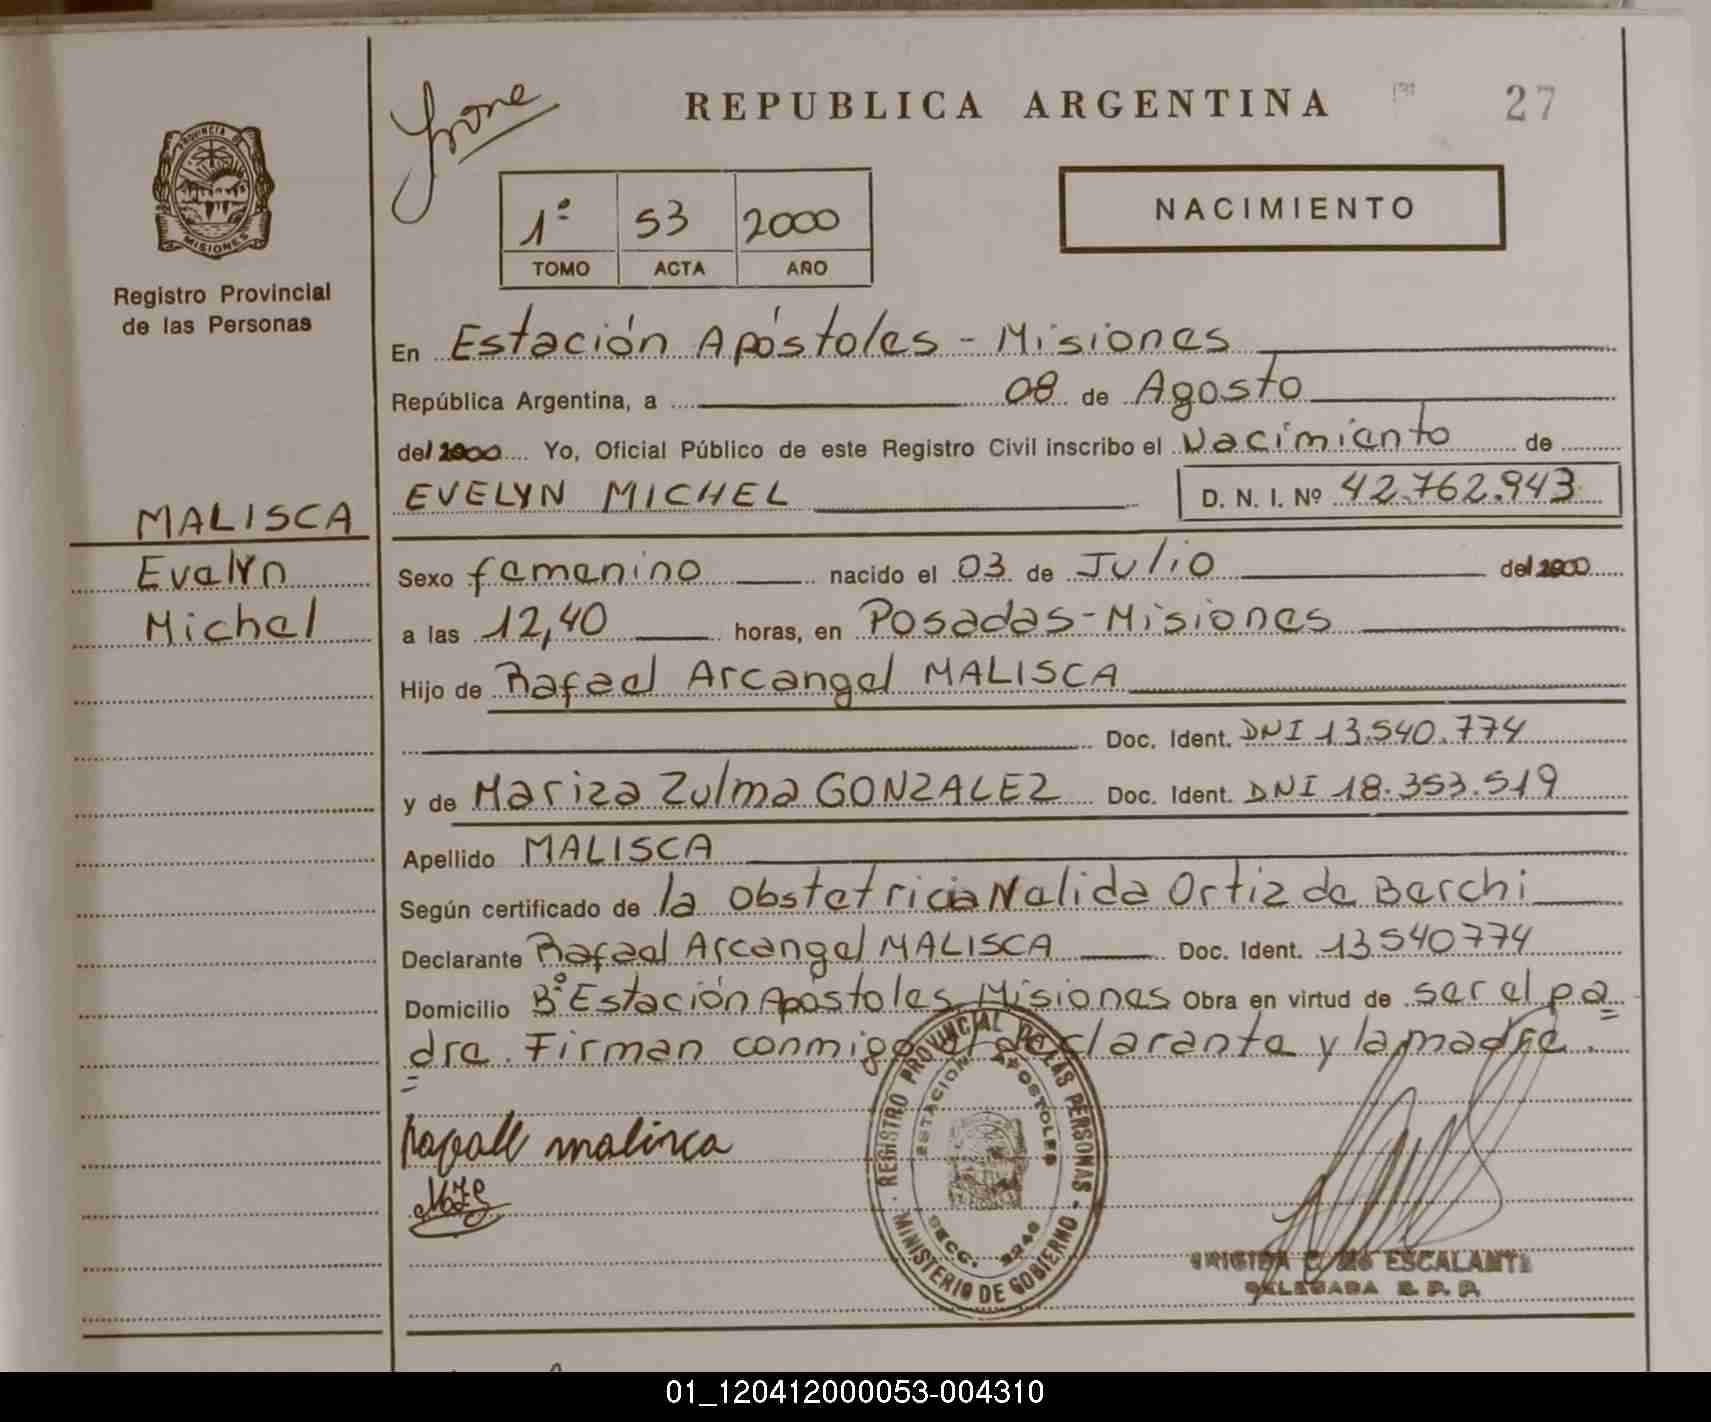 REPUBLICA ARGENTINA
27
PROVINCIA DE
MISIONES
Registro Provincial
de las Personas
1º 53 2000
TOMO ACTA AÑO
NACIMIENTO
En Estación Apóstoles - Misiones
República Argentina, a 08 de Agosto
del 2000 Yo, Oficial Público de este Registro Civil inscribo el Nacimiento de
EVELYN MICHEL D. N. I. Nº 42.762.943
MALISCA
Evelyn
Michel
Sexo femenino nacido el 03 de Julio del 2000
a las 12,40 horas, en Posadas - Misiones
Hijo de Rafael Arcangel MALISCA
Doc. Ident. DNI 13.540.774
y de Mariza Zulma GONZALEZ Doc. Ident. DNI 18.353.519
Apellido MALISCA
Según certificado de la Obstetricia Nelida Ortiz de Berchi
Declarante Rafael Arcangel MALISCA Doc. Ident. 13540774
Domicilio Bº Estación Apóstoles Misiones Obra en virtud de ser el pa
dre. Firman conmigo el declarante y la madre.
REGISTRO PROVINCIAL DE LAS PERSONAS
MINISTERIO DE GOBIERNO
ESTACION APOSTOLES
malisca
MZG
ESCALANTE
DELEGADA R. P. P.
01_120412000053-004310